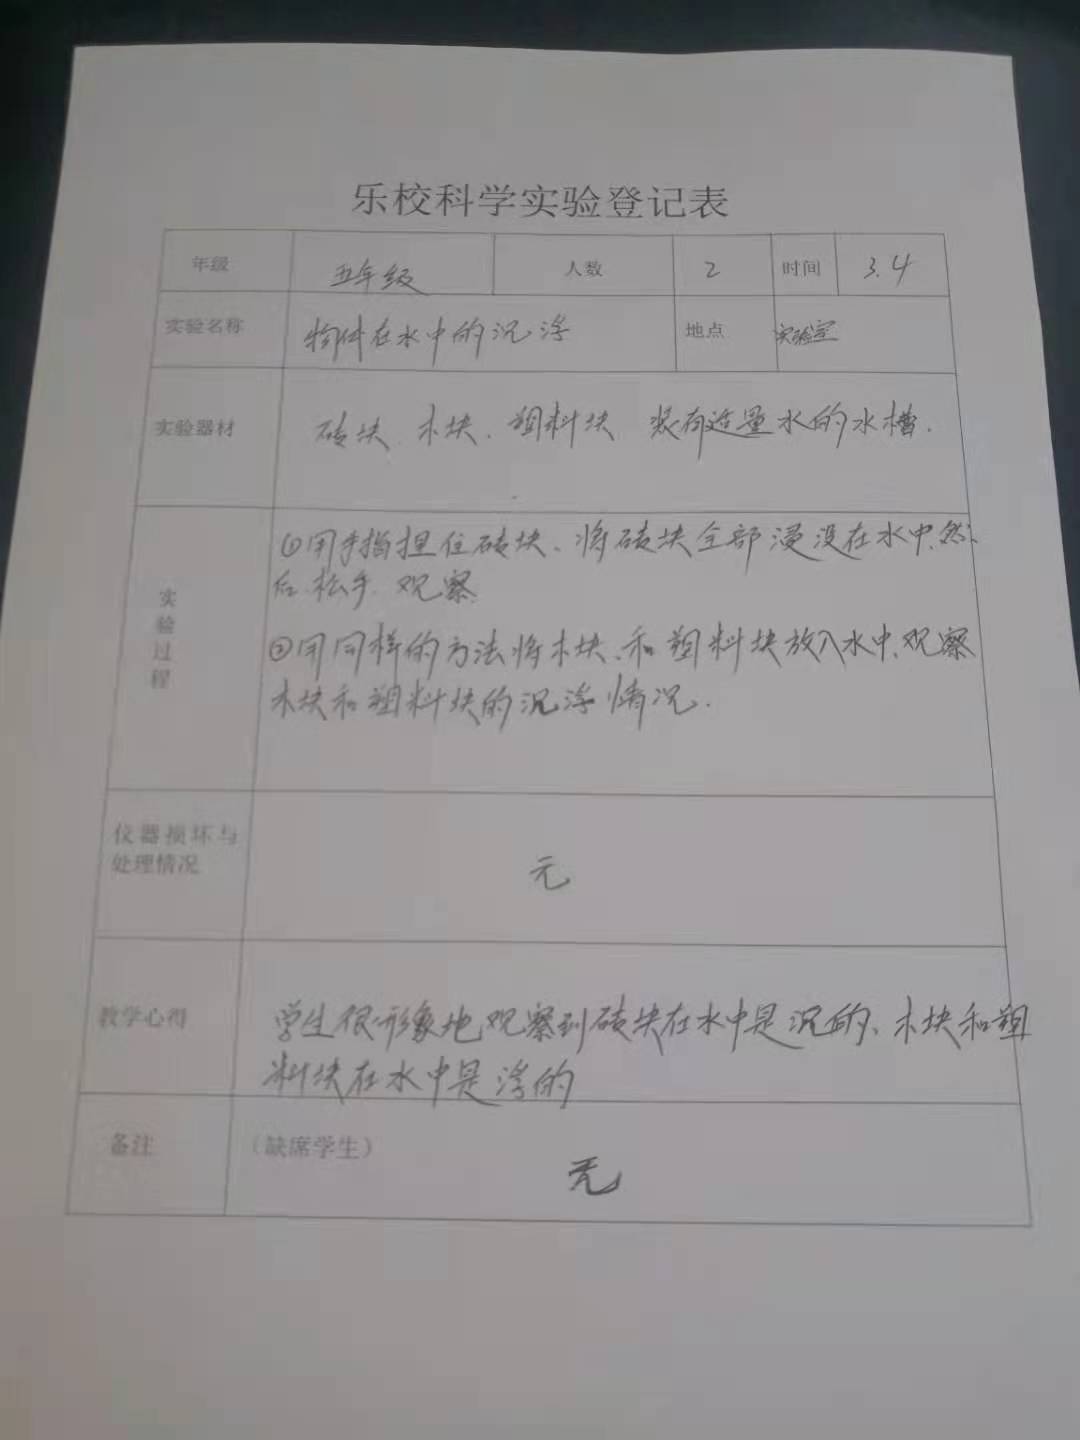 乐校科学实验登记表
年级 五年级 人数 2 时间 3.4
实验名称 物体在水中的沉浮 地点 实验室
实验器材 砖块、木块、塑料块 装有适量水的水槽.
实验过程
①用手指捏住砖块、将砖块全部浸没在水中、然
后、松手、观察
②用同样的方法将木块、和塑料块放入水中、观察
木块和塑料块的沉浮情况.
仪器损坏与
处理情况
无
教学心得
学生很形象地观察到砖块在水中是沉的、木块和塑
料块在水中是浮的
备注 （缺席学生）
无